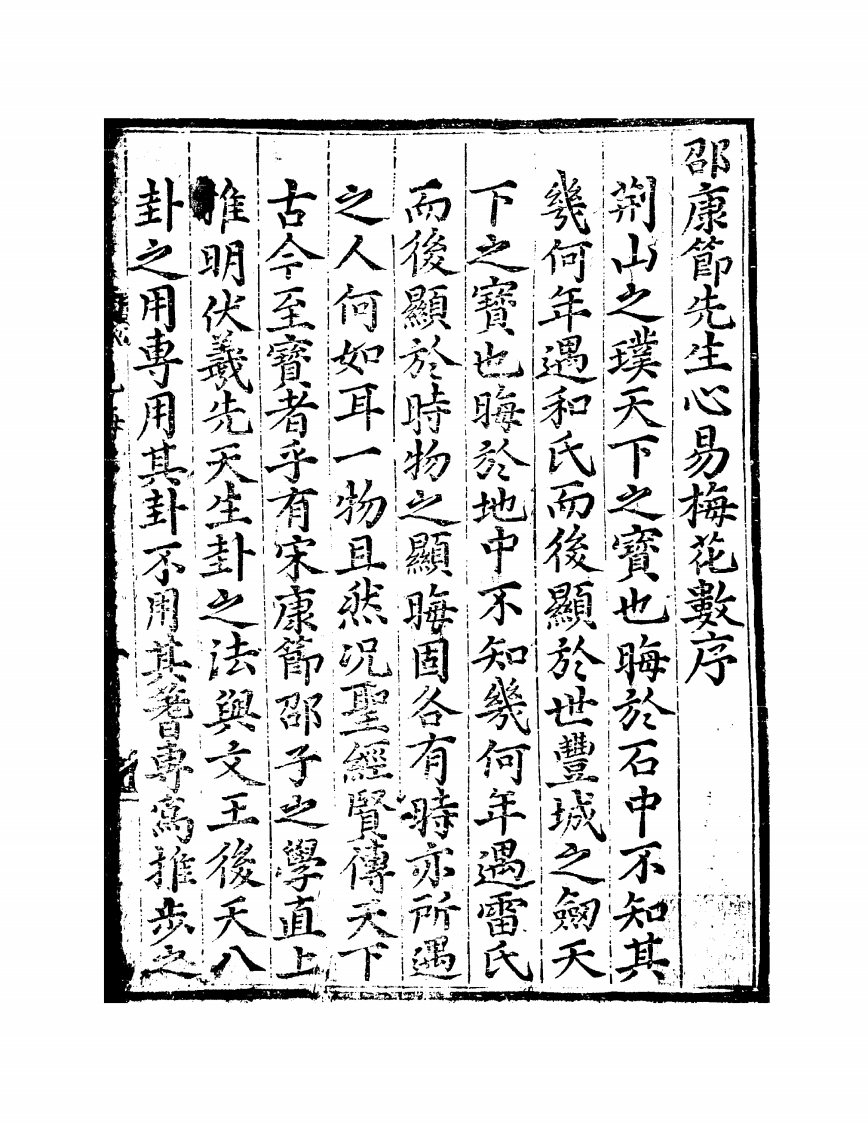 邵康節先生心易梅花數序
荊山之璞天下之寶也晦於石中不知其
幾何年遇和氏而後顯於世豐城之劒天
下之寶也晦於地中不知幾何年遇雷氏
而後顯於時物之顯晦固各有時亦所遇
之人何如耳一物且然况聖經賢傳天下
古今至寶者乎有宋康節邵子之學直上
推明伏羲先天生卦之法與文王後天八
卦之用專用其卦不用其蓍專爲推步之